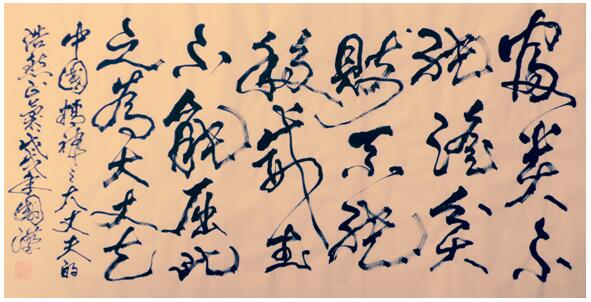 富贵不
能淫贫
賤不能
移威武
不能屈此
之為大丈夫
中國精神之大丈夫的
浩然正氣